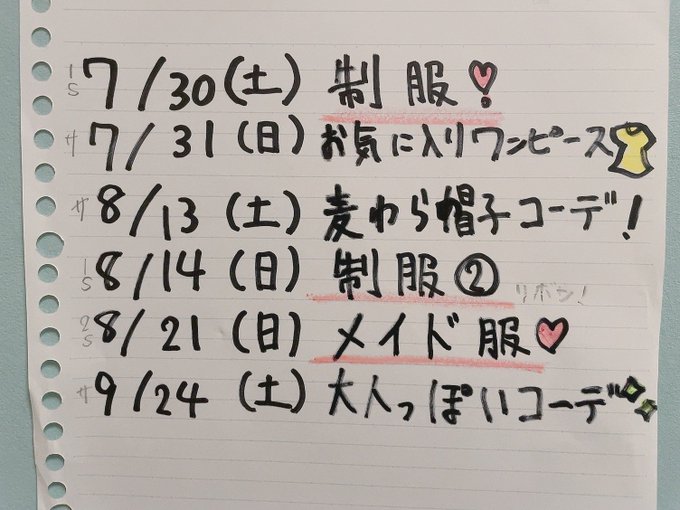 1S 7/30(土) 制服!
サ 7/31(日) お気に入りワンピース
サ 8/13(土) 麦わら帽子コーデ!
1S 8/14(日) 制服② リボン!
2S 8/21(日) メイド服
サ 9/24(土) 大人っぽいコーデ